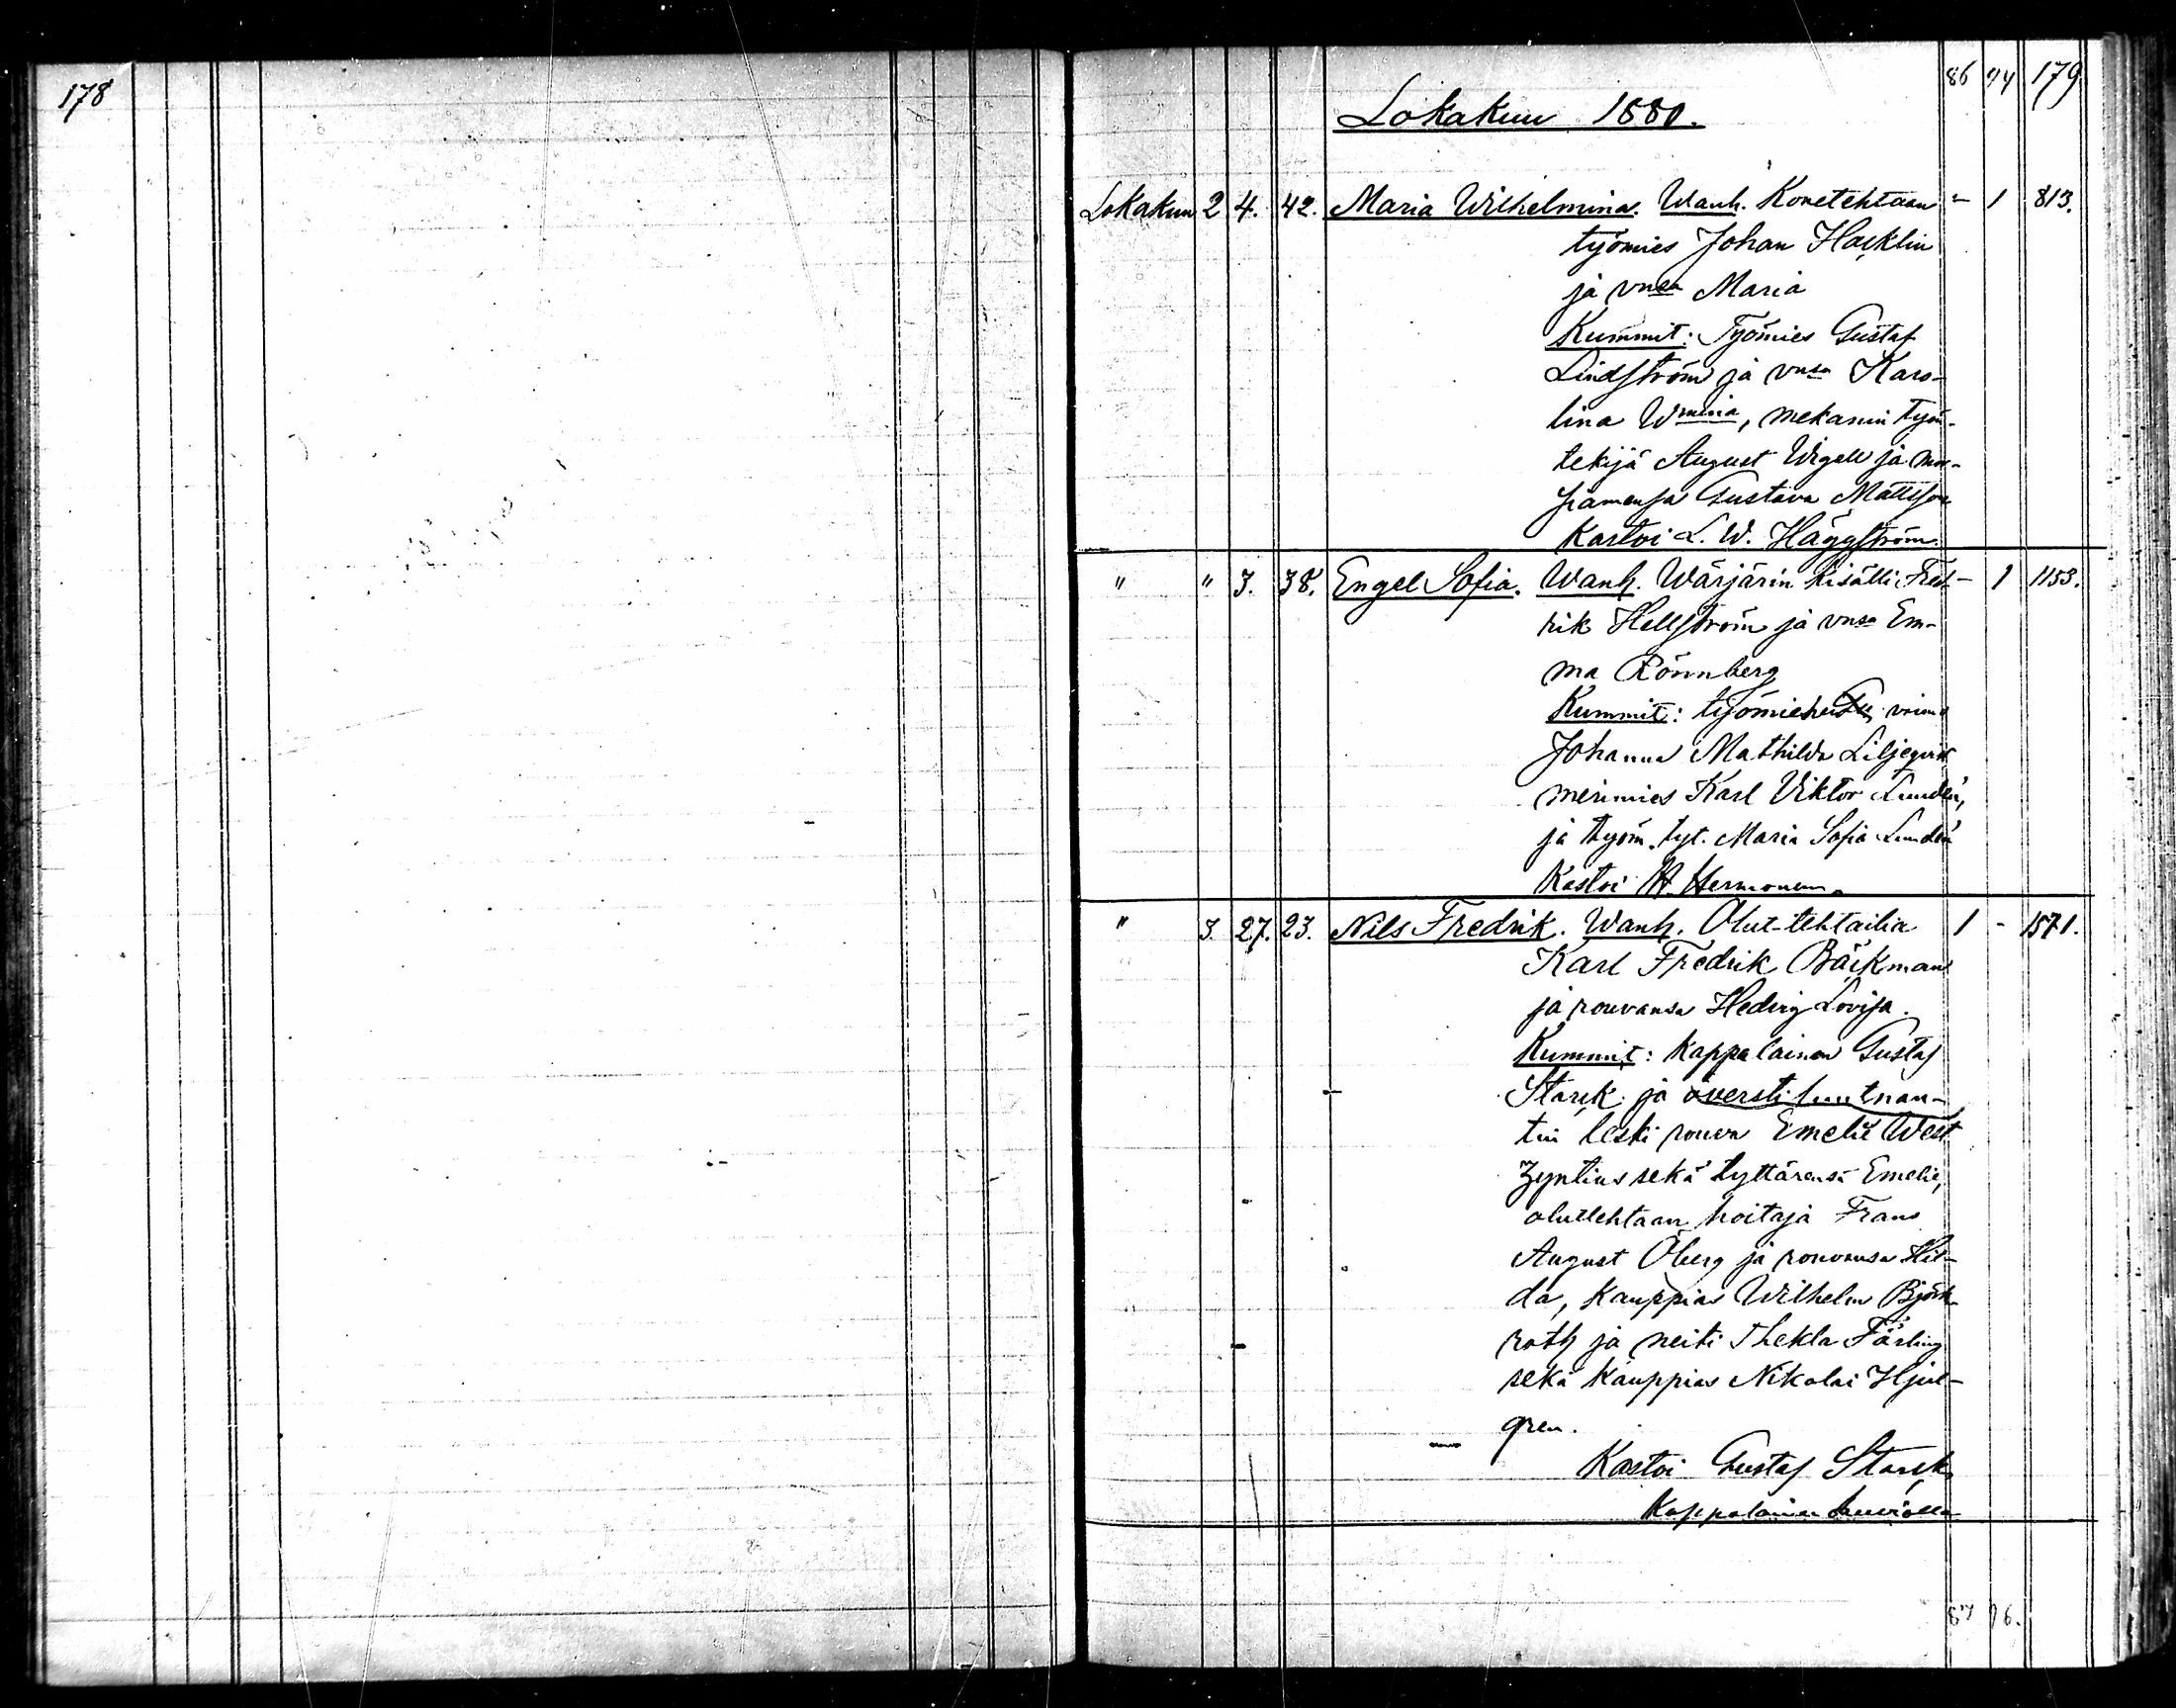 178
86 74 179
Lokakuu 1880.
Lokakuu 2 4. 42. Maria Wilhelmina. Wanh. Konetehtaan - 1 813.
työmies Johan Hacklin
ja vnsa Maria
Kummit: Työmies Gustaf
Lindström ja vnsa Karo-
lina Wmina, mekanin työn-
tekijä August Wigell ja mor-
siamensa Gustava Mattsson
Kastoi L. W. Häggström.
" " 3. 38. Engel Sofia. Wanh. Wärjärin kisälli Fred- - 1 1153.
rik Hellström ja vnsa Em-
ma Rönnberg
Kummit: työmiehen vaimo
Johanna Mathilda Liljeqvist
merimies Karl Viktor Lundén,
ja työm. tyt. Maria Sofia Lundén
Kastoi H. Hermonen.
" 3. 27. 23. Nils Fredrik. Wanh. Olut-tehtailia 1 - 1571.
Karl Fredrik Bäckman
ja rouvansa Hedvig Lovisa.
Kummit: Kappalainen Gustaf
Starck ja översti luutnan-
tin leski rouva Emelie West
Zyntius sekä tyttärensä Emelie,
oluttehtaan hoitaja Frans
August Öberg ja rouvansa Hil-
da, Kauppias Wilhelm Björk-
roth ja neiti Thekla Färling
sekä Kauppias Nikolai Hjul-
gren.
Kastoi Gustaf Starck
Kappalainen
87 76.